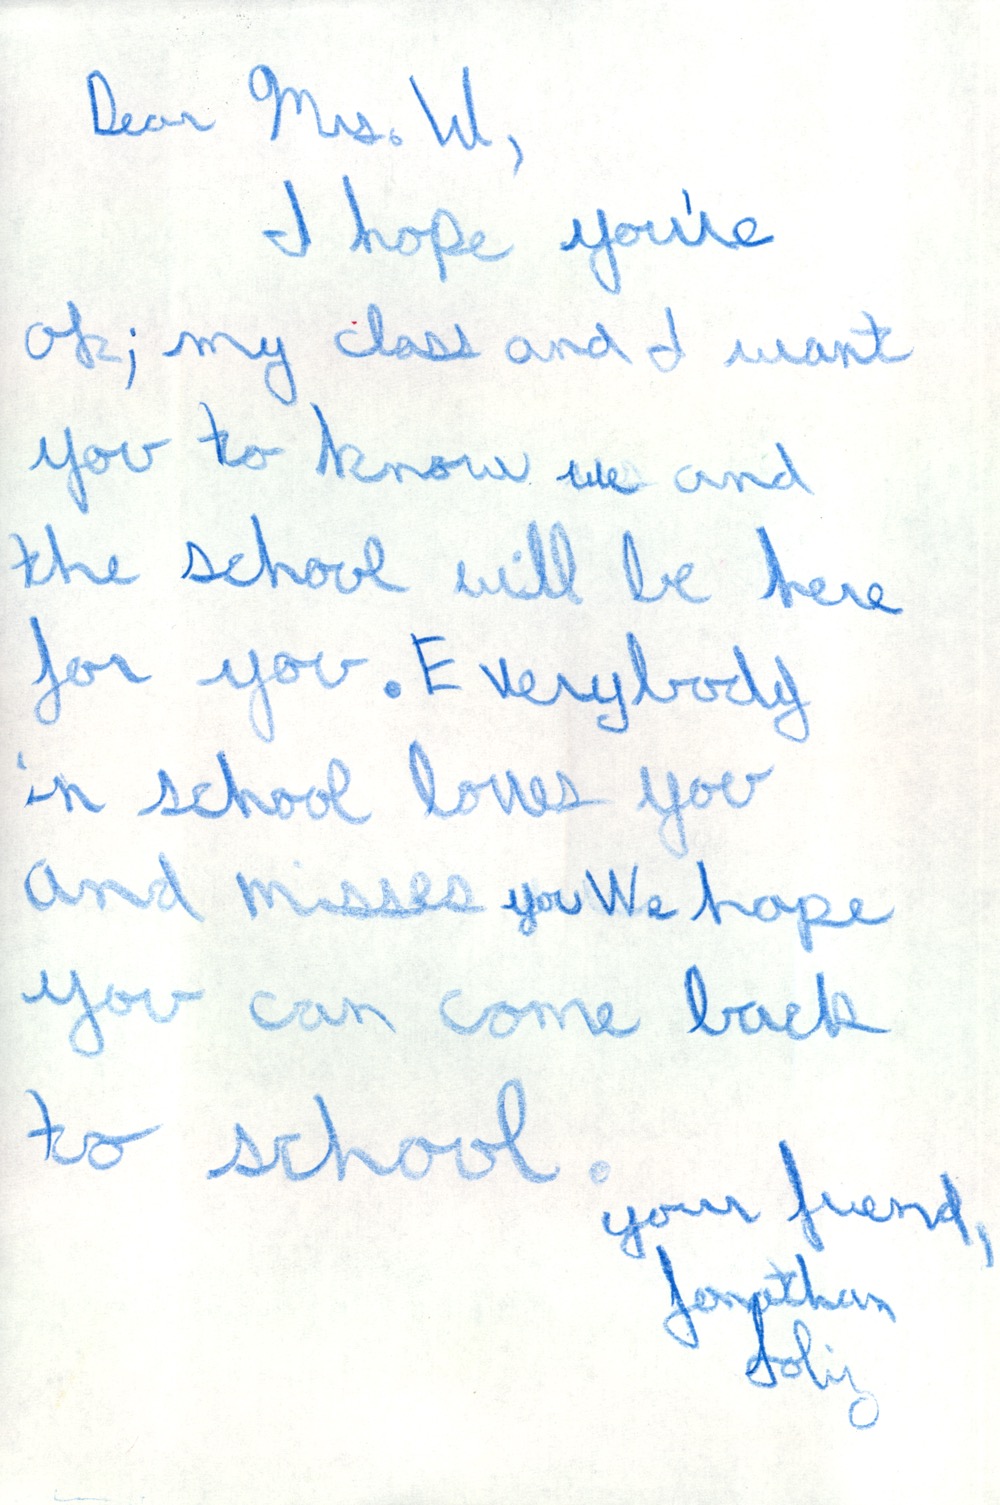 Dear Mrs. W,
I hope you're
ok; my class and I want
you to know we and
the school will be here
for you. Everybody
in school loves you
and misses you We hope
you can come back
to school.
your friend,
Jonathan
Soliz